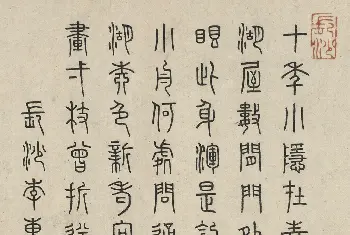 長沙
十年小隱在
湖屋數間門
眼此身渾是
小舟何處問
湖春色新
畫寸枝曾折
長沙李東